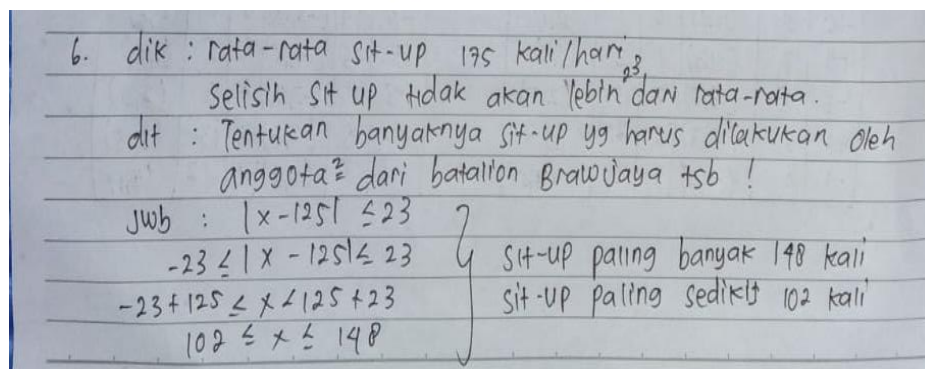 6. dik : rata-rata sit-up 175 kali/hari,
selisih sit up tidak akan lebih 23 dari rata-rata.
dit : Tentukan banyaknya sit-up yg harus dilakukan oleh
anggota² dari batalion Brawijaya tsb !
jwb : |x-125| ≤ 23
-23 ≤ |x - 125| ≤ 23
-23+125 ≤ x ≤ 125 +23
102 ≤ x ≤ 148
sit-up paling banyak 148 kali
sit-up paling sedikit 102 kali